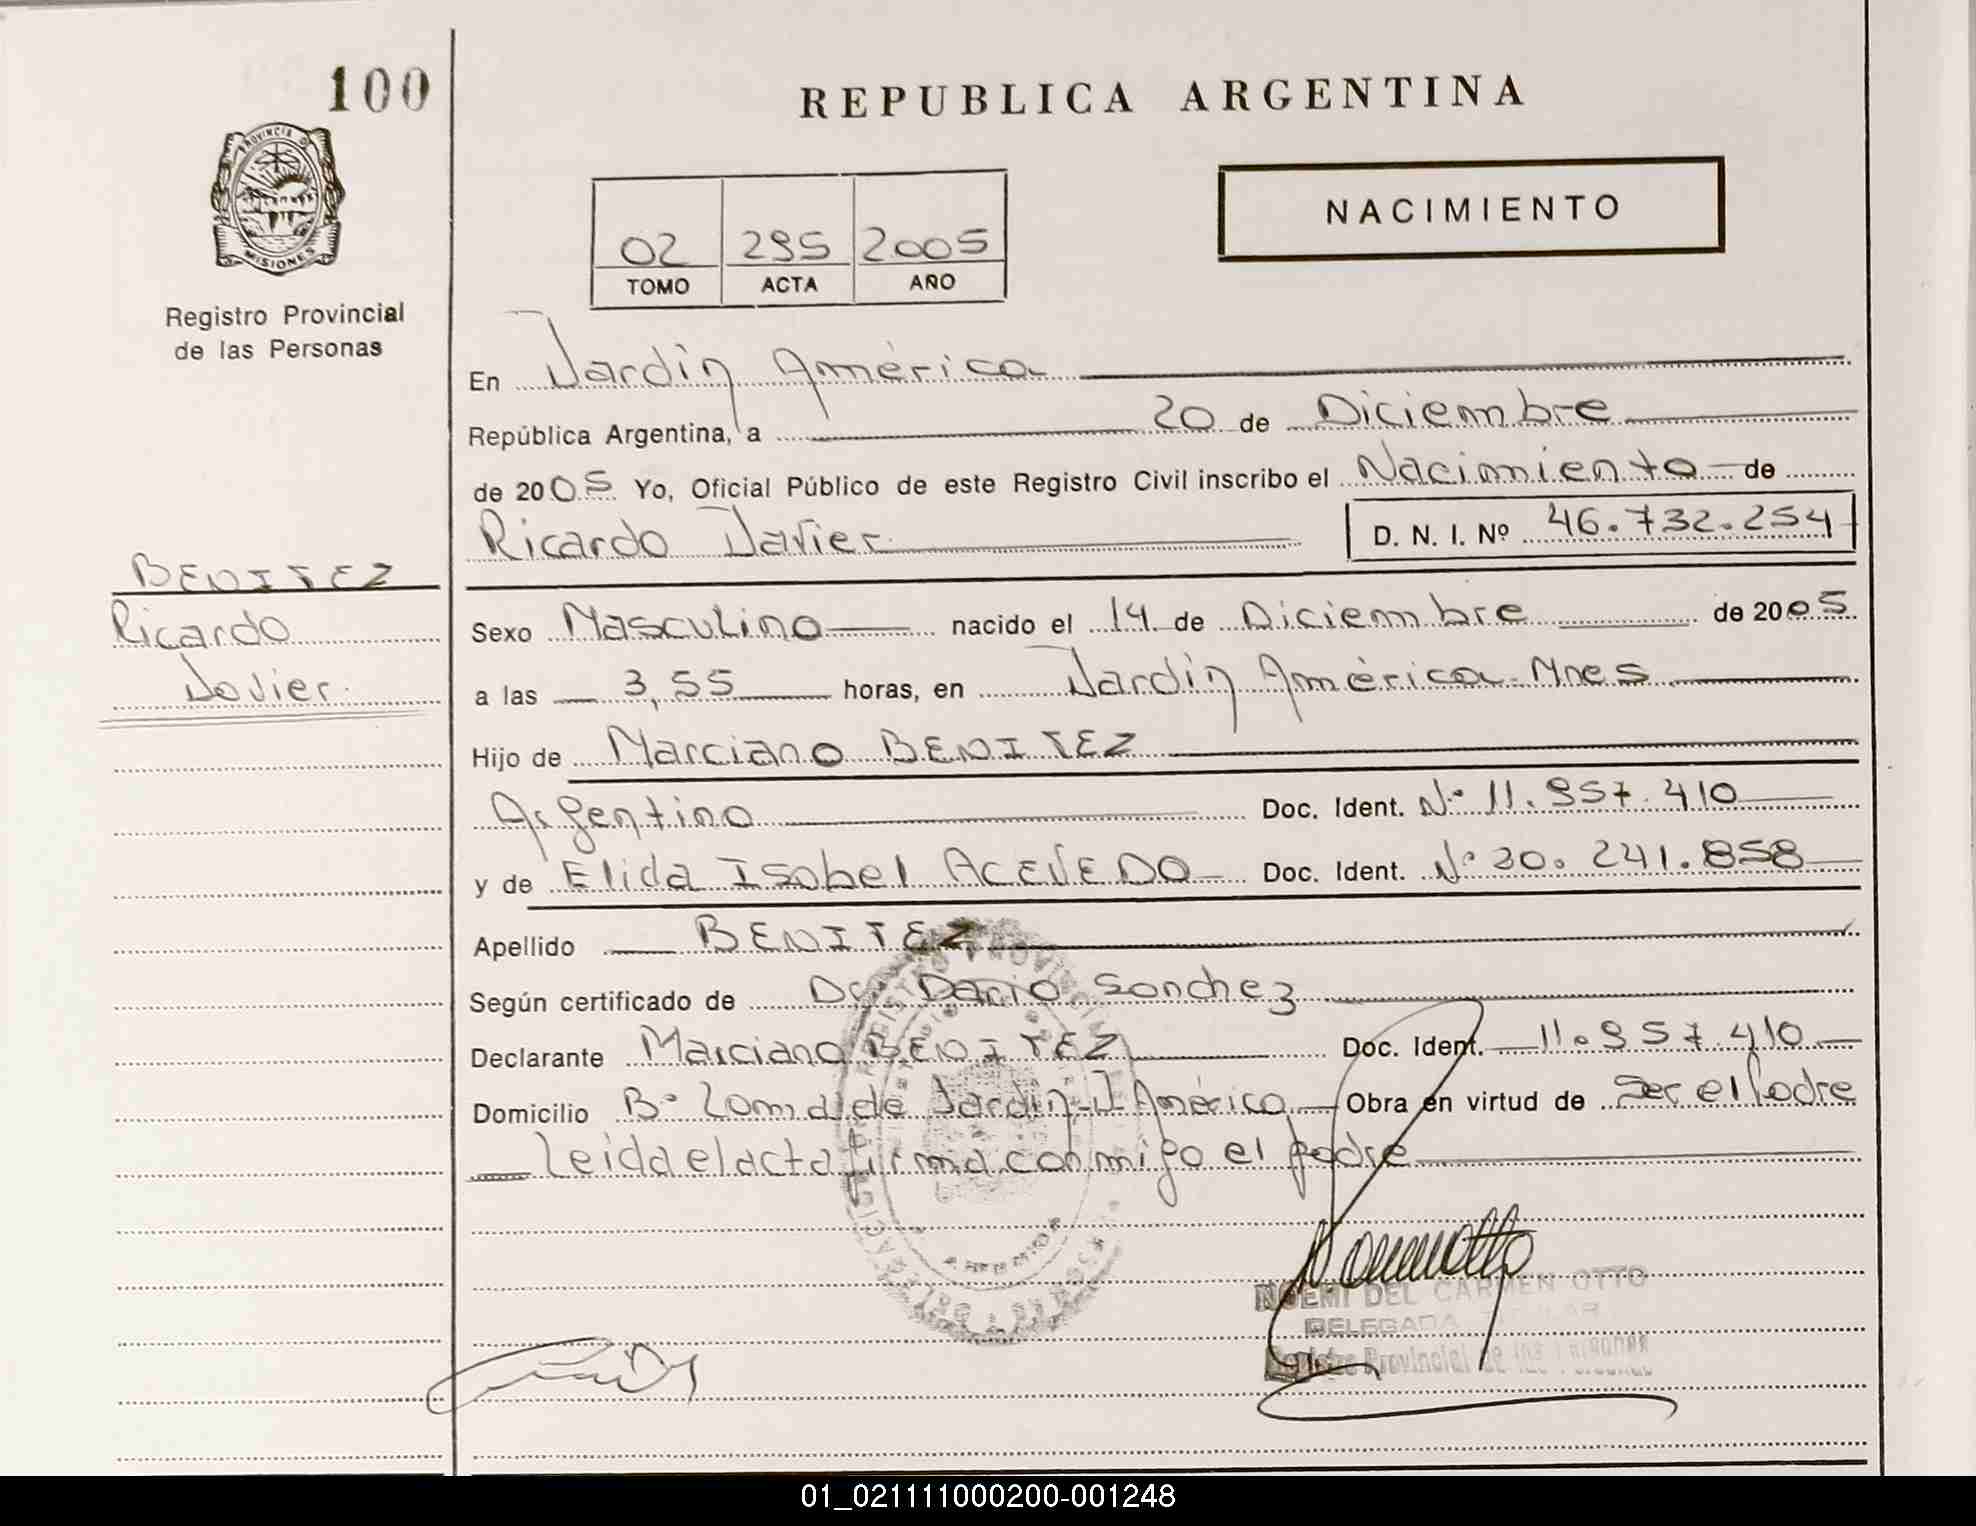 100
REPUBLICA ARGENTINA
PROVINCIA D
MISIONES
Registro Provincial
de las Personas
NACIMIENTO
02 295 2005
TOMO ACTA AÑO
En Jardín América
República Argentina, a 20 de Diciembre
de 2005 Yo, Oficial Público de este Registro Civil inscribo el Nacimiento de
Ricardo Javier D. N. I. Nº 46.732.254
BENITEZ
Ricardo
Javier.
Sexo Masculino nacido el 14 de Diciembre de 2005
a las 3,55 horas, en Jardín América-Mnes
Hijo de Marciano BENITEZ
Argentino Doc. Ident. Nº 11.957.410
y de Elida Isabel ACEVEDO Doc. Ident. Nº 241.858
Apellido BENITEZ
Según certificado de Dr. Dario Sanchez
Declarante Marciano BENITEZ Doc. Ident. 11.957.410
Domicilio Bº Loma de Jardín-J América Obra en virtud de Ser el Padre
Leida el acta firma conmigo el padre
NOEMI DEL CARMEN OTTO
DELEGADA TITULAR
Registro Provincial de las Personas
01_021111000200-001248